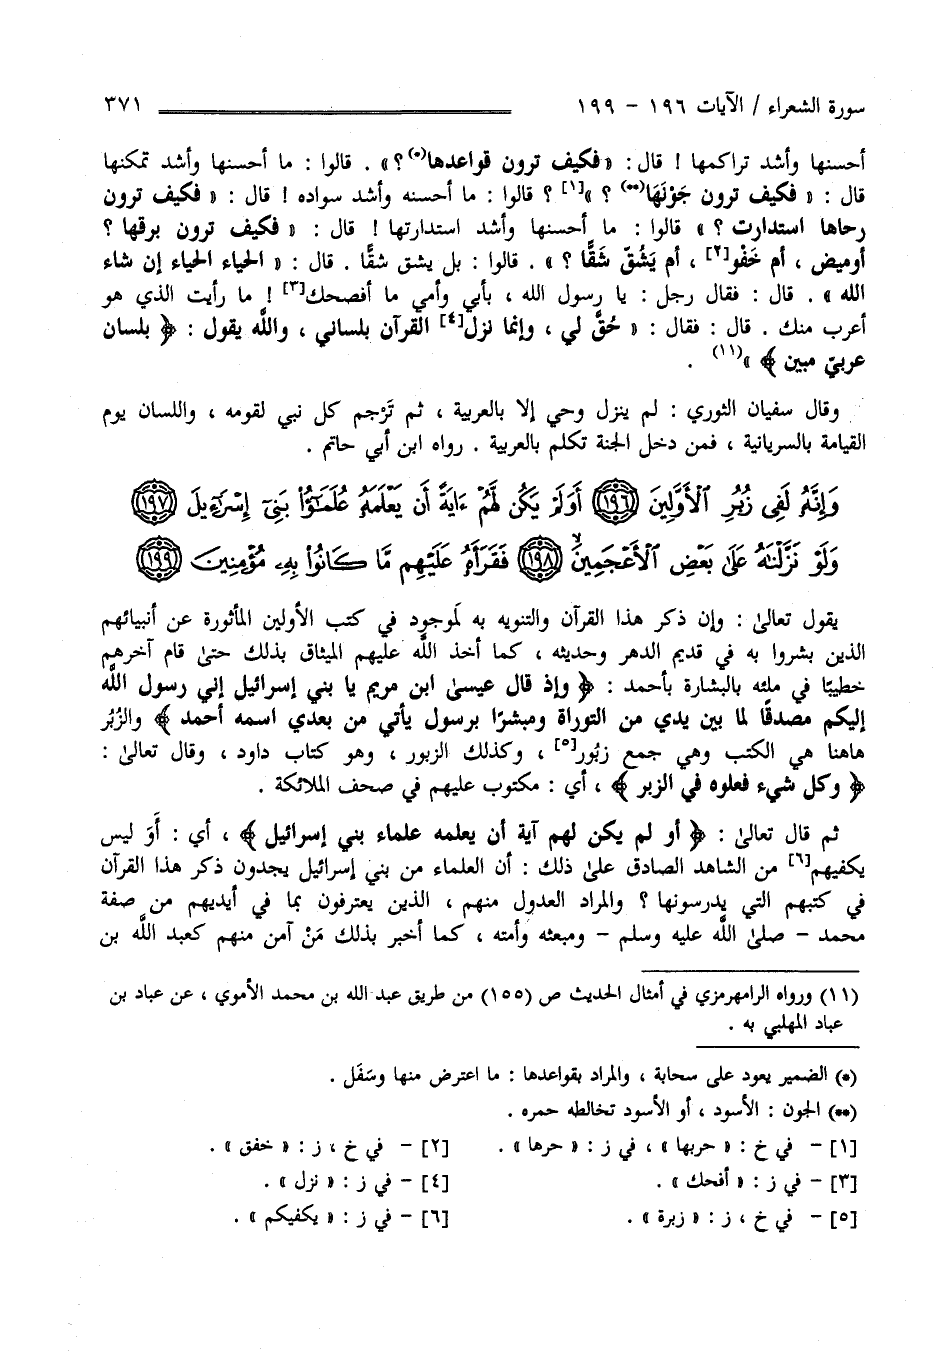 سورة الشعراء / الآيات ١٩٦ - ١٩٩ ٣٧١
أحسنها وأشد تراكمها ! قال : « فكيف ترون قواعدها(*) ؟ » . قالوا : ما أحسنها وأشد تمكنها
قال : « فكيف ترون جَوْنَهَا(**) ؟ »[١] ؟ قالوا : ما أحسنه وأشد سواده ! قال : « فكيف ترون
رحاها استدارت ؟ » قالوا : ما أحسنها وأشد استدارتها ! قال : « فكيف ترون برقها ؟
أوميض ، أم خَفْو[٢] ، أم يَشُقّ شَقًّا ؟ » . قالوا : بل يشق شقًّا . قال : « الحياء الحياء إن شاء
الله » . قال : فقال رجل : يا رسول الله ، بأبي وأمي ما أفصحك[٣] ! ما رأيت الذي هو
أعرب منك . قال : فقال : « حُقَّ لي ، وإنما نزل[٤] القرآن بلساني ، واللَّه يقول : ﴿ بلسان
عربيّ مبين ﴾ »(١١) .
وقال سفيان الثوري : لم ينزل وحي إلا بالعربية ، ثم تَرْجم كل نبي لقومه ، واللسان يوم
القيامة بالسريانية ، فمن دخل الجنة تكلم بالعربية . رواه ابن أبي حاتم .
وَإِنَّهُۥ لَفِى زُبُرِ ٱلْأَوَّلِينَ ١٩٦ أَوَلَمْ يَكُن لَّهُمْ ءَايَةً أَن يَعْلَمَهُۥ عُلَمَٰٓؤُا۟ بَنِىٓ إِسْرَٰٓءِيلَ ١٩٧
وَلَوْ نَزَّلْنَٰهُ عَلَىٰ بَعْضِ ٱلْأَعْجَمِينَ ١٩٨ فَقَرَأَهُۥ عَلَيْهِم مَّا كَانُوا۟ بِهِۦ مُؤْمِنِينَ ١٩٩
يقول تعالىٰ : وإن ذكر هذا القرآن والتنويه به لَموجود في كتب الأولين المأثورة عن أنبيائهم
الذين بشروا به في قديم الدهر وحديثه ، كما أخذ اللَّه عليهم الميثاق بذلك حتىٰ قام آخرهم
خطيبًا في ملئه بالبشارة بأحمد : ﴿ وإذ قال عيسىٰ ابن مريم يا بني إسرائيل إني رسول اللَّه
إليكم مصدقًا لما بين يدي من التوراة ومبشرًا برسول يأتي من بعدي اسمه أحمد ﴾ والزُبُر
هاهنا هي الكتب وهي جمع زبُور[٥] ، وكذلك الزبور ، وهو كتاب داود ، وقال تعالىٰ :
﴿ وكل شيء فعلوه في الزبر ﴾ ، أي : مكتوب عليهم في صحف الملائكة .
ثم قال تعالىٰ : ﴿ أو لم يكن لهم آية أن يعلمه علماء بني إسرائيل ﴾ ، أي : أَوَ ليس
يكفيهم[٦] من الشاهد الصادق علىٰ ذلك : أن العلماء من بني إسرائيل يجدون ذكر هذا القرآن
في كتبهم التي يدرسونها ؟ والمراد العدول منهم ، الذين يعترفون بما في أيديهم من صفة
محمد - صلىٰ اللَّه عليه وسلم - ومبعثه وأمته ، كما أخبر بذلك مَنْ آمن منهم كعبد اللَّه بن
(١١) ورواه الرامهرمزي في أمثال الحديث ص (١٥٥) من طريق عبد الله بن محمد الأموي ، عن عباد بن
عباد المهلبي به .
(*) الضمير يعود على سحابة ، والمراد بقواعدها : ما اعترض منها وسَفَل .
(**) الجون : الأسود ، أو الأسود تخالطه حمره .
[١] - في خ : « حربها » ، في ز : « حرها » . [٢] - في خ ، ز : « خفق » .
[٣] - في ز : « أفحك » . [٤] - في ز : « نزل » .
[٥] - في خ ، ز : « زبرة » . [٦] - في ز : « يكفيكم » .